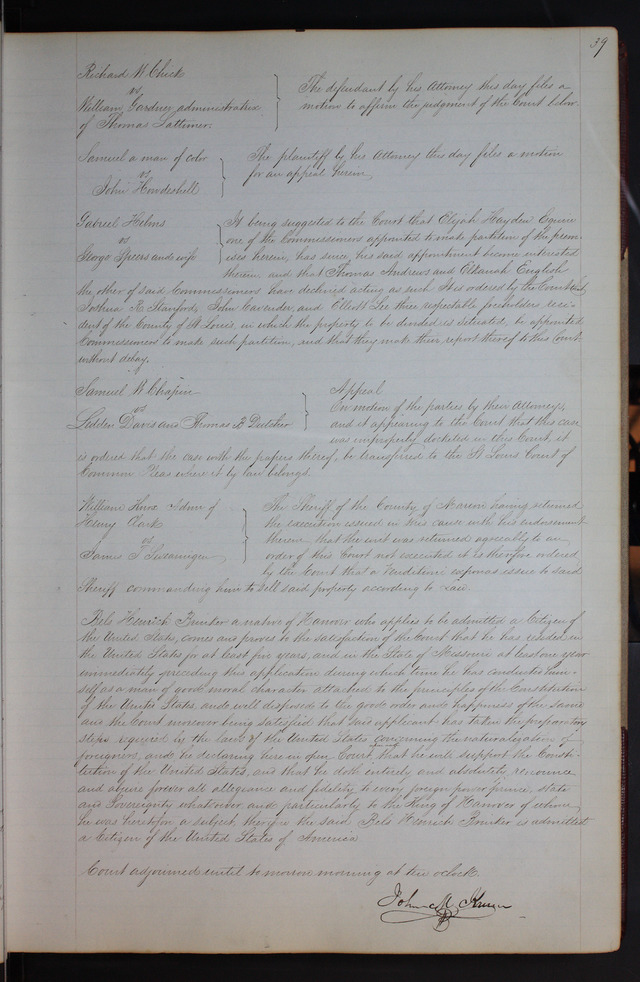 39
Richard W Chick
vs
William Gardner administrator
of Thomas Lattimer.
The defendant by his Attorney this day files a
motion to affirm the judgment of the Court below.
Samuel a man of color
vs
John Howdeshell
The plaintiff by his Attorney this day files a motion
for an appeal herein
Gabriel Helms
vs
George Speers and wife
It being suggested to the Court that Elijah Hayden Esquire
one of the Commissioners appointed to make partition of the prem
ises herein, has since, his said appointment become interested
therein and that Thomas Andrews and Elkanah English
the other of said Commissioners have declined acting as such It is ordered by the Court that
Joshua R. Stanford, John Cavender, and Elliott Lee three respectable freeholders resi-
dent of the County of St Louis, in which the property to be divided is situated, be appointed
Commissioners to make such partition, and that they make their report thereof to this Court
without delay.
Samuel W Chapin
vs
Lidden Davis and Thomas B Dutcher
Appeal
On motion of the parties by their Attorneys,
and it appearing to the Court that this case
was improperly docketed in this Court, it
is ordered that the case with the papers thereof, be transferred to the St Louis Court of
Common Pleas where it by law belongs.
William Knox Admr of
Henry Clark
vs
James T Swearingen
The Sheriff of the County of Marion having returned
the execution issued in this cause with his endorsement
therein, that the writ was returned agreeably to an
order of this Court not executed it is therefore ordered
by the Court that a Venditioni exponas issue to said
Sheriff commanding him to sell said property according to Law.
Bels Henrich Bunker a native of Hanover who applies to be admitted a Citizen of
the United States, comes and proves to the satisfaction of the Court that he has resided in
the United States for at least five years, and in the State of Missouri at least one year
immediately preceding this application during which time he has conducted him-
self as a man of good moral character attached to the principles of the Constitution
of the United States, and well disposed to the good order and happiness of the same
and the Court moreover being satisfied that said applicant has taken the preparatory
steps required by the laws of the United States concerning the naturalization of
foreigners, and he declaring here in open Court, that he will support the Consti-
tution of the United States, and that he doth entirely and absolutely renounce
and abjure forever all allegiance and fidelity to every foreign power prince, state
and Sovereignty whatsoever and particularly to the King of Hanover of whom
he was heretofore a subject, therefore the said Bels Henrich Bunker is admitted
a Citizen of the United States of America
Court adjourned until tomorrow morning at ten oclock.
John M Krum